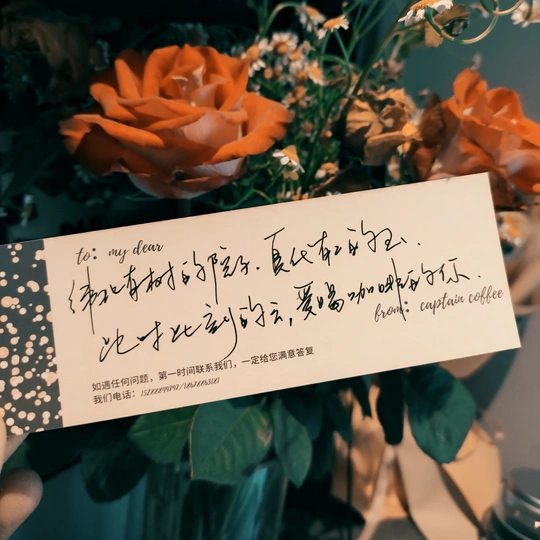 to: my dear
纬北有树的院子.夏代有工的玉.
此时此刻的云,爱喝咖啡的你.
from: captain coffee
如遇任何问题，第一时间联系我们，一定给您满意答复
我们电话：